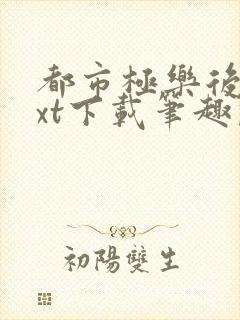 都市極樂後
xt下載筆趣
初陽雙生